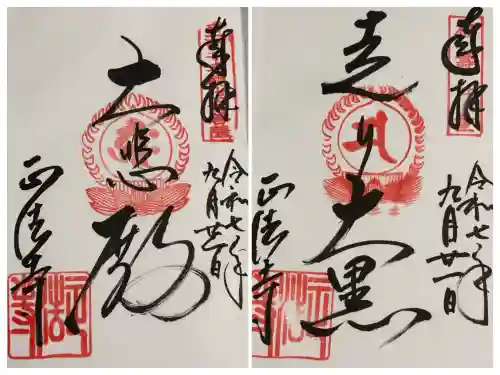 奉拝
令和七年
九月廿一日
大悲殿
正法寺
奉拝
令和七年
九月廿一日
走り大黒
正法寺